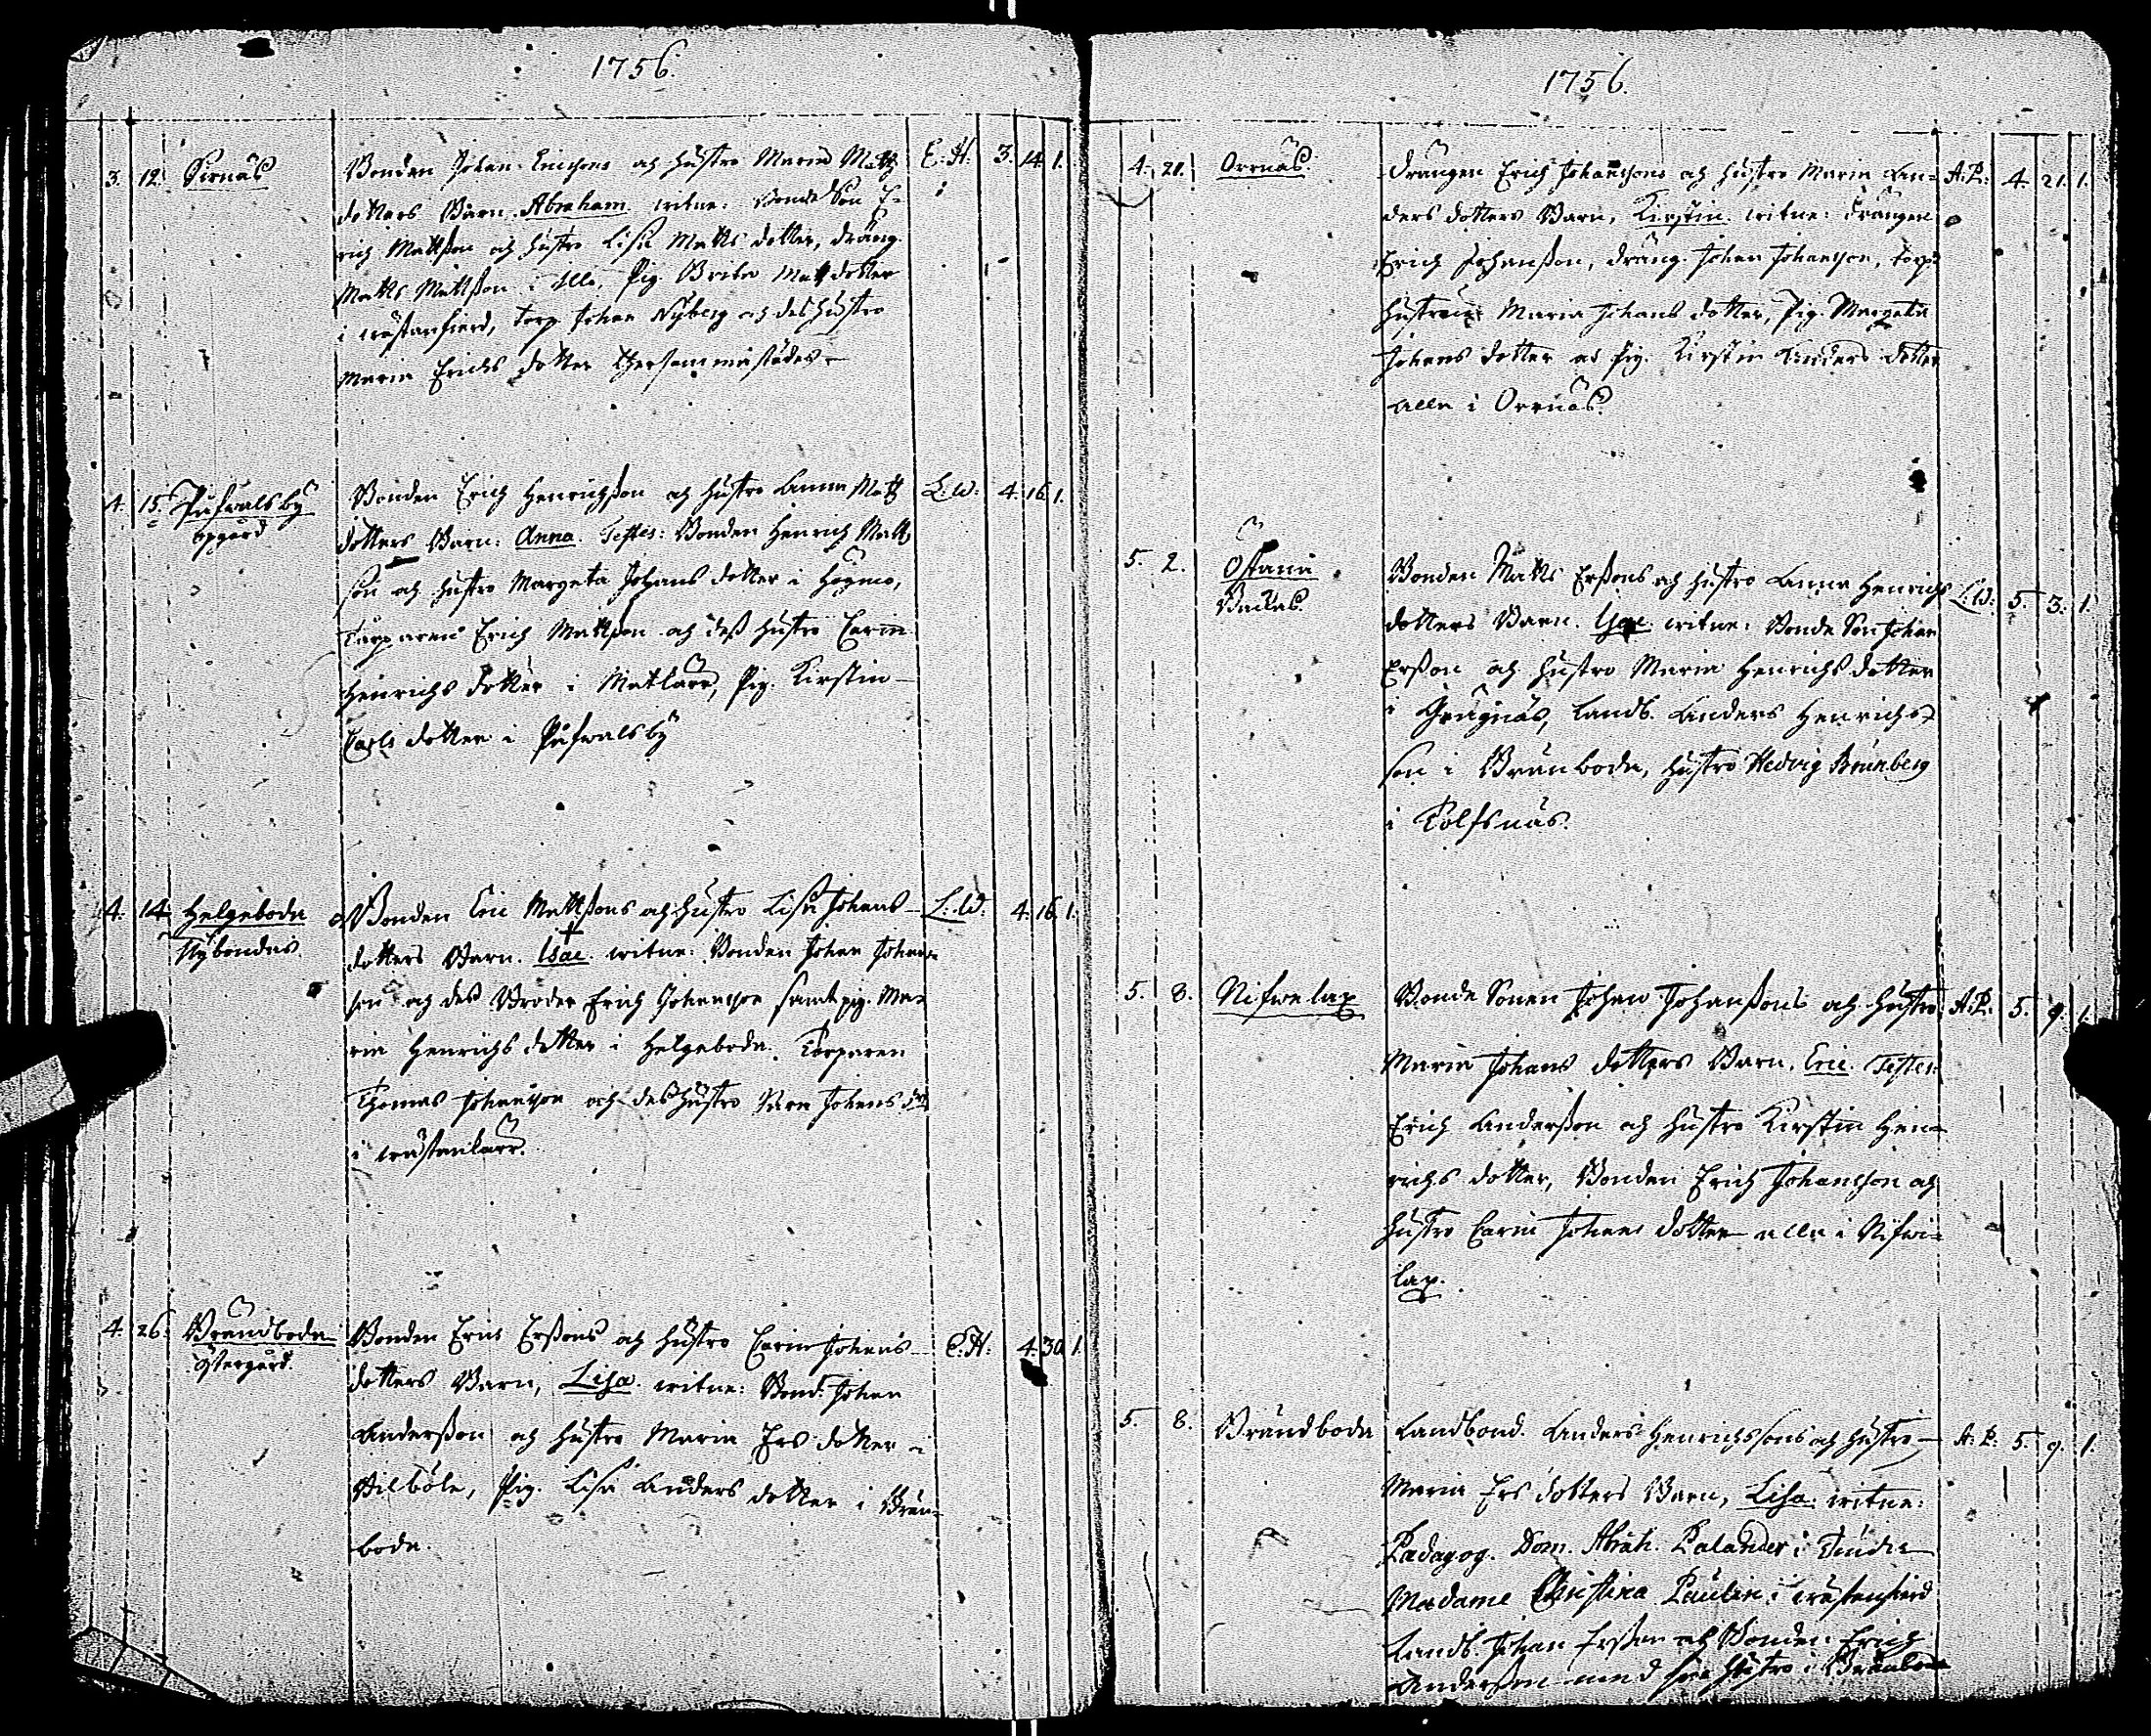 1756.
3. 12. Sirnäs Bonden Johan Ericsons och hustro Maria Matts E. H. 3. 14. 1.
dotters Barn. Abraham. witne: Bonde Son E-
rich Mattsson och hustro Lisa Matts dotter, dräng.
Matts Mattsson alla, Pig. Brita Matts dotter
i wästanfierd, Torp. Johan Nyberg och des hustro
Maria Erichs dotter thersammastädes.
4. 15. Pufwalsby Bonden Erich Henrichsson och hustro Anna Matts L. W. 4. 16. 1.
opgård dotters Barn: Anna. Testes: Bonden Henrich Matts
son och hustro Margeta Johans dotter i Högmo,
Torparen Erich Mattsson och dess hustro Carin
Henrichs dotter i Matkärr, Pig. Kirstin
Carls dotter i Pufwalsby
4. 14. Helgeboda Bonden Eric Mattssons och hustro Lisa Johans L. W. 4. 16. 1.
Nybondas. dotters Barn. Isac. witne: Bonden Johan Johans
son och des Broder Erich Johansson samt pig. Ma-
ria Henrichs dotter i Helgeboda. Torparen
Thomas Johansson och des hustro Johans dott
i wästankärr.
4. 26. Brändboda Bonden Eric Erssons och hustro Carin Johans E. H. 4. 30. 1.
östergård. dotters Barn, Lisa. witne: Bond. Johan
Andersson och hustro Maria Ers dotter i
Vilböle, Pig. Lisa Anders dotter i Brän-
boda.
1756.
4. 21. Orrnäs. Drängen Erich Johanssons och hustro Maria An- A. P. 4. 21. 1.
ders dotters Barn, Kirstin. witne: Drängen
Erich Johansson, dräng. Johan Johansson, torp.
hustrun Maria Johans dotter, Pig. Margeta
Johans dotter och Pig. Kirstin Anders dotter
alla i Orrnäs.
5. 2. Östanå Bonden Matts Erssons och hustro Anna Henrichs L. W. 5. 3. 1.
Backas. dotters Barn. Isac. witne: Bonde Son Johan
Ersson och hustro Maria Henrichs dotter
i Grägnäs, Landb. Anders Henrichs-
son i Bränboda, hustro Hedvig Brunberg
i Tolfsnäs.
5. 8. Nifwelax Bonde Sonen Johan Johanssons och hustro A. P. 5. 9. 1.
Maria Johans dotters Barn. Eric. Testes:
Erich Andersson och hustro Kirstin Hen-
richs dotter, Bonden Erich Johansson och
hustro Carin Johans dotter alla i Nifwe-
lax.
5. 8. Brändboda Landbond. Anders Henrichssons och hustro A. P. 5. 9. 1.
Maria Ers dotters Barn, Lisa. witne:
Pædagog. Dom. Abrah. Palander i
Madame Christina Paulin i wästanfierd
Landb. Johan Ersson och Bonden Erich
Andersson med sin hustro i Bränboda